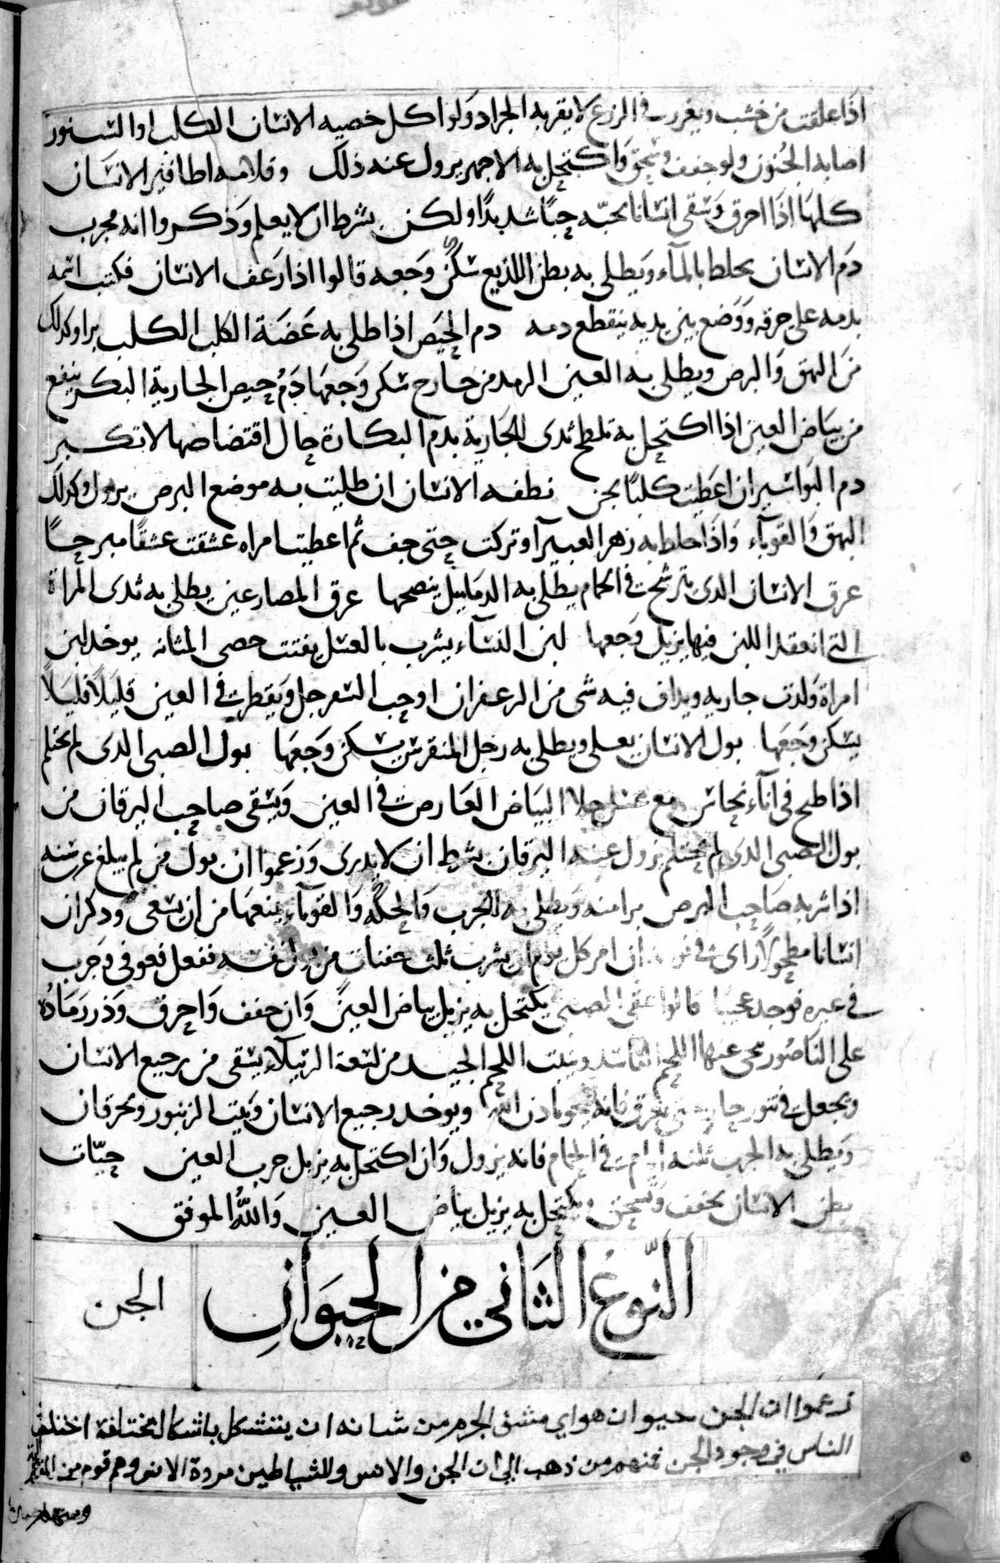 اذا علقت من خشب ويغررت فى الزرع لا يقربه الجراد ولو اكل خصيه الانسان الكلب او السنور
اصابه الجنون ولو جفف وسحق واكتحل به الاجهر يزول عنه ذلك وقلامه اظافير الانسان
كلها اذا احرق وسقى انسانا بحبّه حبّا شديدًا ولكن بشرط ان لا يعلم وذكروا انه مجرب
دم الانسان يخلط بالمآء ويطلى به بطن اللذيع سكن وجعه قالوا اذا رعف الانسان فكتب اسمه
بدمه على خرقه ووضع بين يديه ينقطع دمه دم الحيض اذا طلى به عضة الكلب الكلب يبرا وكذلك
من البهق والبرص ويطلى به العين الرمد من خارج سكن وجعها دم حيض الجارية البكر ينفع
من بياض العين اذا اكتحل به تلطخ ثدى الجارية بدم البكارة حال اقتضاضها لا تكبر
دم البواسير ان اعطيت كلبًا يجن نطفه الانسان ان طليت به موضع البرص يزول وكذلك
البهق والقوبآء واذا خلط به زهر العبيرآ وتركت حتى جف ثم اعطيتها مراه عشقت عشقًا مبرحًا
عرق الانسان الذى يترشح فى الحمام يطلى به الدماميل ينضجها عرق المصارعين يطلى به ثدى المراة
التى انعقد اللبن فيها يزيل وجعها لبن النسآء يشرب بالعسل يفتت حصى المثانه يوخذ لبن
امراة ولدت جاريه ويداف فيه شى من الزعفران او حب السفرجل ويقطر فى العين قليلًا قليلًا
يسكن وجعها بول الانسان يعلى ويطلى به رجل المنقرس يسكن وجعها بول الصبى الذى لم يحتلم
اذا طبخ فى آنآء نحاس مع عسل جلا البياض العارض فى العين ويسقى صاحب اليرقان من
بول الصبى الذى لم يحتلم يزول عنه اليرقان بشرط ان لا يدرى وزعموا ان بول من لم يبلغ عشر سنه
اذا شربه صاحب البرص برا منه ويطلى به الجرب والحكه والقوبآء يمنعها من ان تسعى وذكر ان
انسانا مطحولا راى فى نومه ان امر كل يوم ان يشرب ثلث حفنات من بول نفسه ففعل فعوفى وجرب
فى غيره فوجد عجيبا قالوا عقى الصبى يكتحل به يزيل بياض العين وان جفف واحرق وذر رماده
على الناصور محى عنها اللحم الفاسد وينبت اللحم الجيد من لسعة الرتيلآ يسقى من رجيع الانسان
ويجعل فى تنور حار حتى يعرق فانه ينجو باذن الله ويوخذ رجيع الانسان وبيت الزنبور ويحرقان
ويطلى به الجرب ثلثه ايام فى الحمام فانه يزول وان اكتحل به يزيل جرب العين حيّات
بطن الانسان يجفف ويسحق ويكتحل به يزيل بياض العين والله الموفق
النّوع الثاني من الحيوان
الجن
زعموا ان الجن حيوان هواي مشف الجرم من شانه ان يتشكل باشكال مختلفة اختلف
الناس في وجود الجن فمنهم من ذهب الى ان الجن والانس والشياطين مردة الانس وهم قوم من المعتزلة
ومنهم